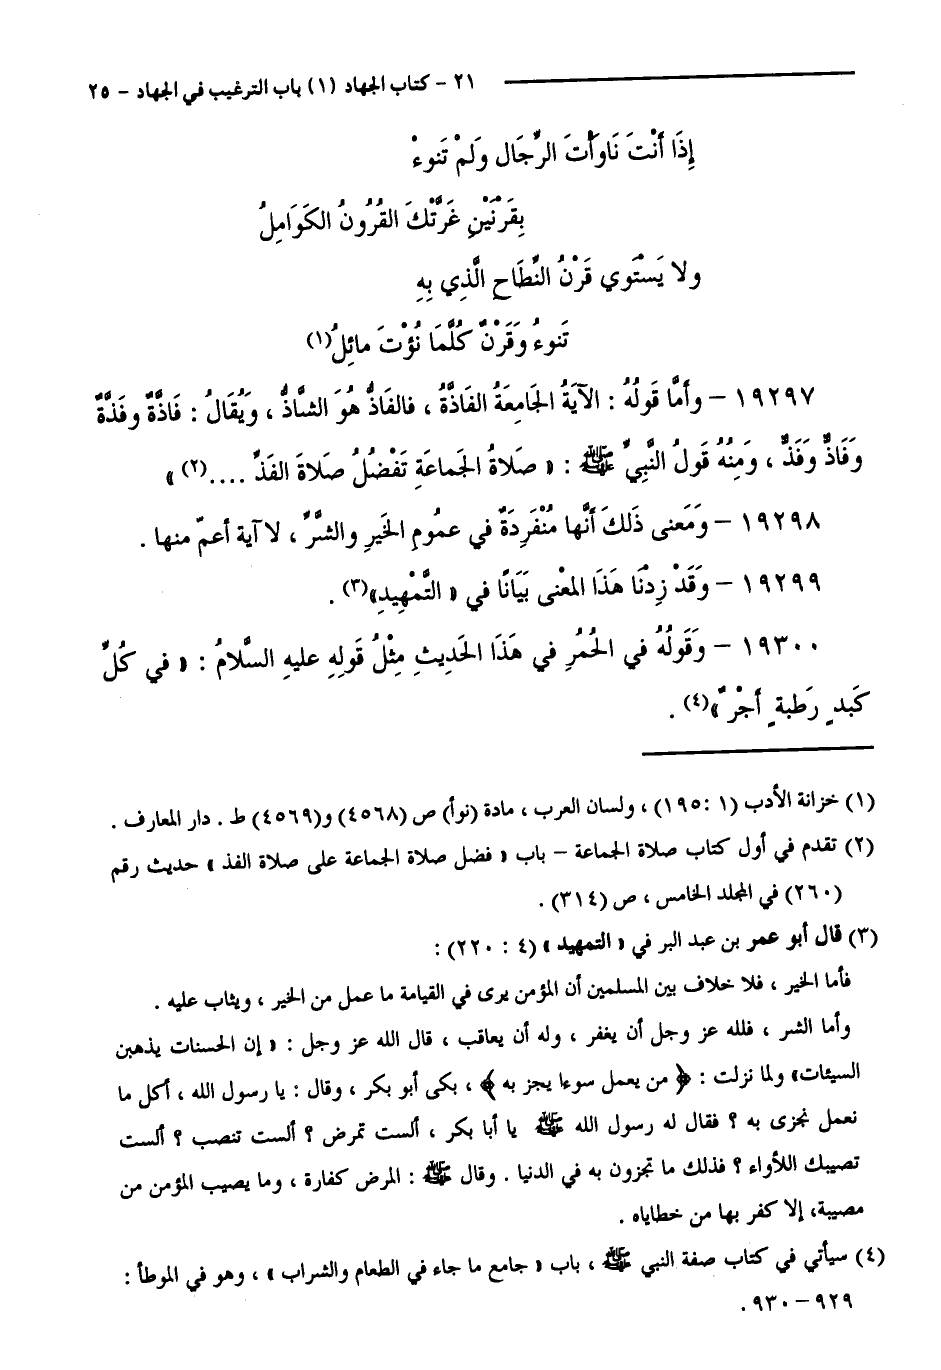 ٢١ - كتاب الجهاد (١) باب الترغيب في الجهاد - ٢٥
إِذَا أَنْتَ نَاوَأْتَ الرِّجَال وَلَمْ تَنوءْ
بِقَرْنَيْنِ غَرَّتْكَ القُرُونُ الكَوَامِلُ
ولا يَسْتَوي قَرْنُ النِّطَاحِ الَّذِي بِهِ
تَنوءُ وَقَرْنٌ كُلَّمَا نُؤْتَ مائِلُ(١)
١٩٢٩٧ - وأمَّا قَولُهُ : الآيَةُ الجَامعَةُ الفَاذَّةُ ، فالفَاذُّ هُوَ الشَّاذُّ ، وَيُقَالُ : فَاذَّةٌ وفَذَّةٌ
وَفَاذٌّ وَفَذٌّ ، وَمِنْهُ قَولُ النَّبِيِّ ﷺ : « صَلاةُ الجَماعَةِ تَفْضُلُ صَلاةَ الفَذِّ ....(٢) »
١٩٢٩٨ - وَمَعنى ذَلكَ أَنَّها مُنْفَرِدَةٌ في عمُومِ الخَيرِ والشَّرِّ ، لا آية أعمّ منها .
١٩٢٩٩ - وَقَدْ زِدْنَا هَذَا المعْنى بَيَانًا في « التَّمْهِيدِ»(٣) .
١٩٣٠٠ - وَقَولُهُ في الحُمُرِ في هَذَا الحَديثِ مِثْلُ قَولِهِ عليهِ السَّلامُ : « في كُلِّ
كَبدٍ رَطبةٍ أجْرٌ»(٤) .
(١) خزانة الأدب (١ :١٩٥) ، ولسان العرب ، مادة (نوأ) ص (٤٥٦٨) و(٤٥٦٩) ط . دار المعارف .
(٢) تقدم في أول كتاب صلاة الجماعة - باب « فضل صلاة الجماعة على صلاة الفذ » حديث رقم
(٢٦٠) في المجلد الخامس ، ص (٣١٤) .
(٣) قال أبو عمر بن عبد البر في « التمهيد » (٤ : ٢٢٠) :
فأما الخير ، فلا خلاف بين المسلمين أن المؤمن يرى في القيامة ما عمل من الخير ، ويثاب عليه .
وأما الشر ، فلله عز وجل أن يغفر ، وله أن يعاقب ، قال الله عز وجل : « إن الحسنات يذهبن
السيئات» ولما نزلت : ﴿ من يعمل سوءا يجز به ﴾ ، بكى أبو بكر ، وقال : يا رسول الله ، أكل ما
نعمل نجزى به ؟ فقال له رسول الله ﷺ يا أبا بكر ، ألست تمرض ؟ ألست تنصب ؟ ألست
تصيبك اللأواء ؟ فذلك ما تجزون به في الدنيا . وقال ﷺ : المرض كفارة ، وما يصيب المؤمن من
مصيبة، إلا كفر بها من خطاياه .
(٤) سيأتي في كتاب صفة النبي ﷺ ، باب « جامع ما جاء في الطعام والشراب » ، وهو في الموطأ :
٩٢٩-٩٣٠ .